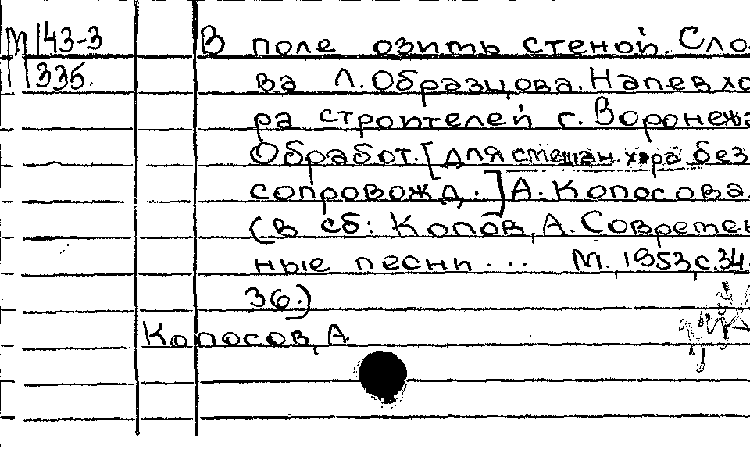 М 143-3
335.
В поле озимь стеной. Сло
ва Л. Образцова. Напев хо
ра строителей г. Воронежа
Обработ. [для смешан. хора без
сопровожд.] А. Копосова.
(в сб: Копов, А. Современ
ные песни ... М., 1953, с. 34.
36.)
Копосов, А.